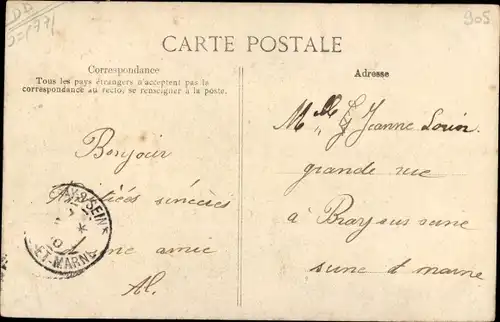 905
CARTE POSTALE
Correspondance
Tous les pays étrangers n'acceptent pas la
correspondance au recto, se renseigner à la poste.
Adresse
Bonjour
Amitiés sincères
une amie
Al.
Mlle Jeanne Louin
grande rue
à Bray sus seine
seine et marne
SEINE
ET-MARNE